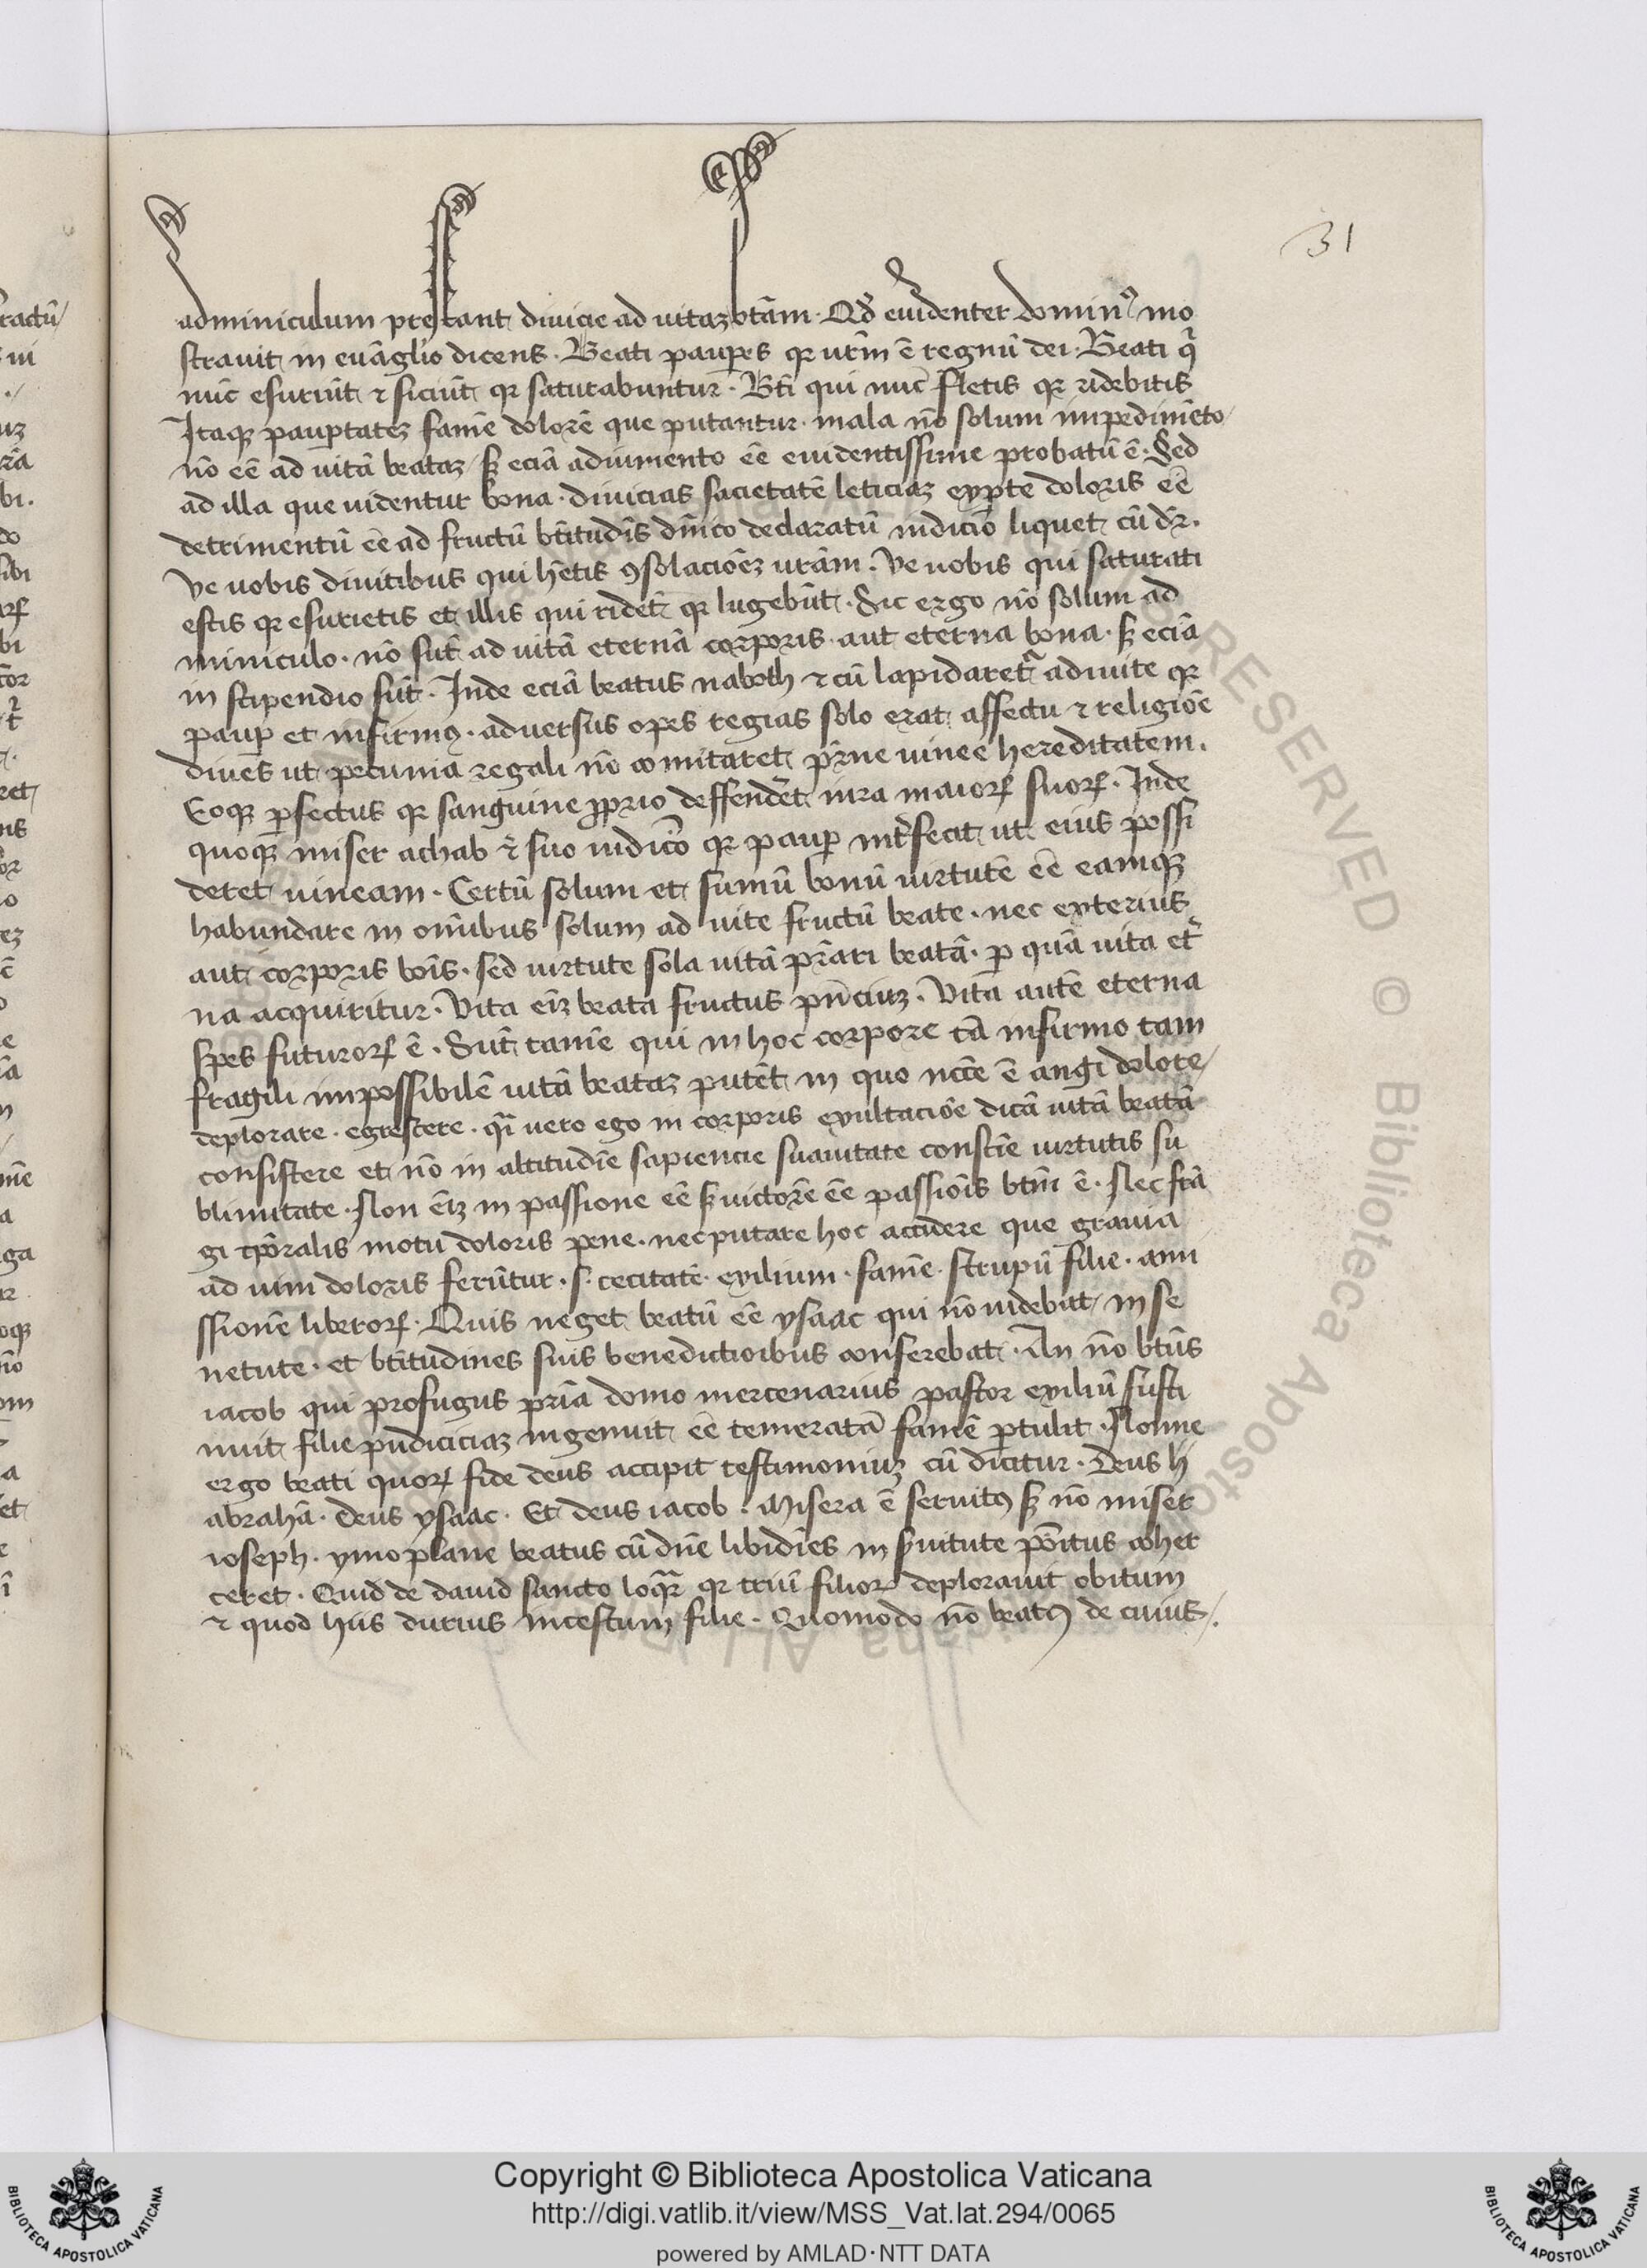 31
adminiculum prestant diuicie ad uitaꝫ btām. Qđ euidenter dominꝰ mo
strauit in euāglio dicens. Beati pauꝑes qꝛ urm̄ ē regnū dei. Beati qͥ
nūc esuriūt ⁊ siciūt qꝛ saturabuntur. Bti̅ qui nūc fletis qꝛ ridebitis
Itaqꝫ pauꝑtateꝫ famē dolorē que putantur mala nō solum impedimēto
nō eē ad uitā beataꝫ sꝫ eciā adiumento eē euidentissime probatū ē. Sed
ad illa que uidentur bona. diuicias sacietatē leticiaꝫ exꝑte doloris eē
detrimentū eē ad fructū btitudīs dn̄ico declaratū iudicio liquet cū dr̄.
Ve uobis diuitibus qui hētis ꝯsolacōeꝫ urām. Ve uobis qui saturati
estis qꝛ esurietis et illis qui ridēt qꝛ lugebūt. Sic ergo nō solum ad
miniculo. nō sūt ad uitā eternā corporis aut eterna bona. sꝫ eciā
in stipendio sūt. Inde eciā beatus naboth ⁊ cū lapidaretᷣ a diuite qꝛ
pauꝑ et infirmꝰ. aduersus opes regias solo erat affectu ⁊ religiōe
diues ut pecunia regali nō comitaret pr̄ne uinee hereditatem.
Eoqꝫ ꝑfectus qꝛ sanguine ꝓprio deffenderet iura maioꝝ suoꝝ. Inde
quoqꝫ miser achab ē suo iudicō qꝛ pauꝑ int̄fecit ut eius possi
deret uineam. Certū solum et sumū bonū uirtutē eē eamqꝫ
habundare in om̄ibus solum ad uite fructū beate. nec exterius
aut corporis boīs. sed uirtute sola uitā pr̄ari beatā. ꝑ quā uita et̄
na acquiritur. Vita eīꝫ beata fructus pn̄ciuꝫ. Vita autē eterna
spes futuroꝝ ē. Sūt tamē qui in hoc corpore tā infirmo tam
fragili impossibilē uitā beataꝫ putēt in quo nc̄ce ē angi dolore
deplorare. egrescere. qͣi uero ego in corporis exultaciōe dicā uitā beatā
consistere et nō in altitudīe sapiencie suauitate conscīe uirtutis su
blimitate. Non ēīꝫ in passione eē sꝫ uictorē eē passiōis btm̄ ē. Nec frā
gi tꝑōralis motu doloris pene. nec putare hoc accidere que grauia
ad uim doloris ferūtur. s. cecitatē. exilium. famē. strupū filie. ami
ssionē liberoꝝ. Quis neget beatū eē ysaac qui nō uidebat in se
netute. et btitudines suis benedictioībus conferebat. An nō btūs
iacob qui profugus pr̄ia domo mercenarius pastor exiliū susti
nuit filie pudiciciaꝫ ingemuit eē temeratā famē ꝑtulit. Nonne
ergo beati quoꝝ fide deus accipit testimoniuꝫ cū dicitur. Deus h
abrahā. deus ysaac. Et deus iacob. Misera ē seruitꝰ sꝫ nō miser
ioseph. ymo plane beatus cū dn̄e libidīes in ẜuitute pōitus coher
ceret. Quid de dauid sancto loqͣr qꝛ triū filioꝝ deplorauit obitum
⁊ quod hiis durius incestum filie. Quomodo nō beatꝰ de cuius.
Copyright © Biblioteca Apostolica Vaticana
http://digi.vatlib.it/view/MSS_Vat.lat.294/0065
powered by AMLAD·NTT DATA